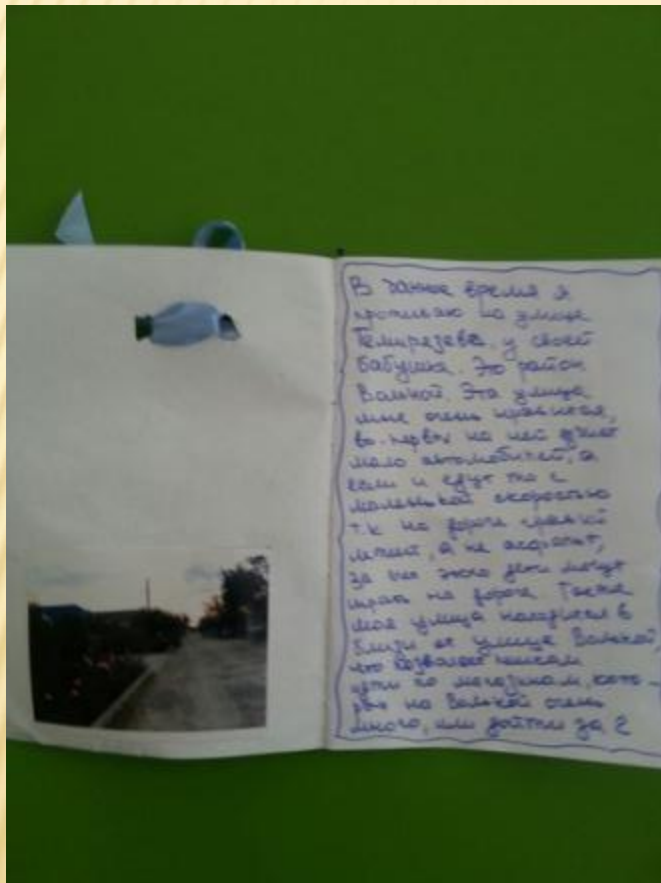 В данное время я
проживаю на улице
Темирязева, у своей
бабушки. Это район
Вольной. Эта улица
мне очень нравится,
во-первых на ней ездит
мало автомобилей, а
если и едут то с
маленькой скоростью
т.к на дороге
а не асфальт,
за дети могут
играть на дороге Также
моя улица находится в
близи от улице Вольной,
что позволяет пешком
идти по магазинам, кото-
рых на Вольной очень
много, или дойти за 2